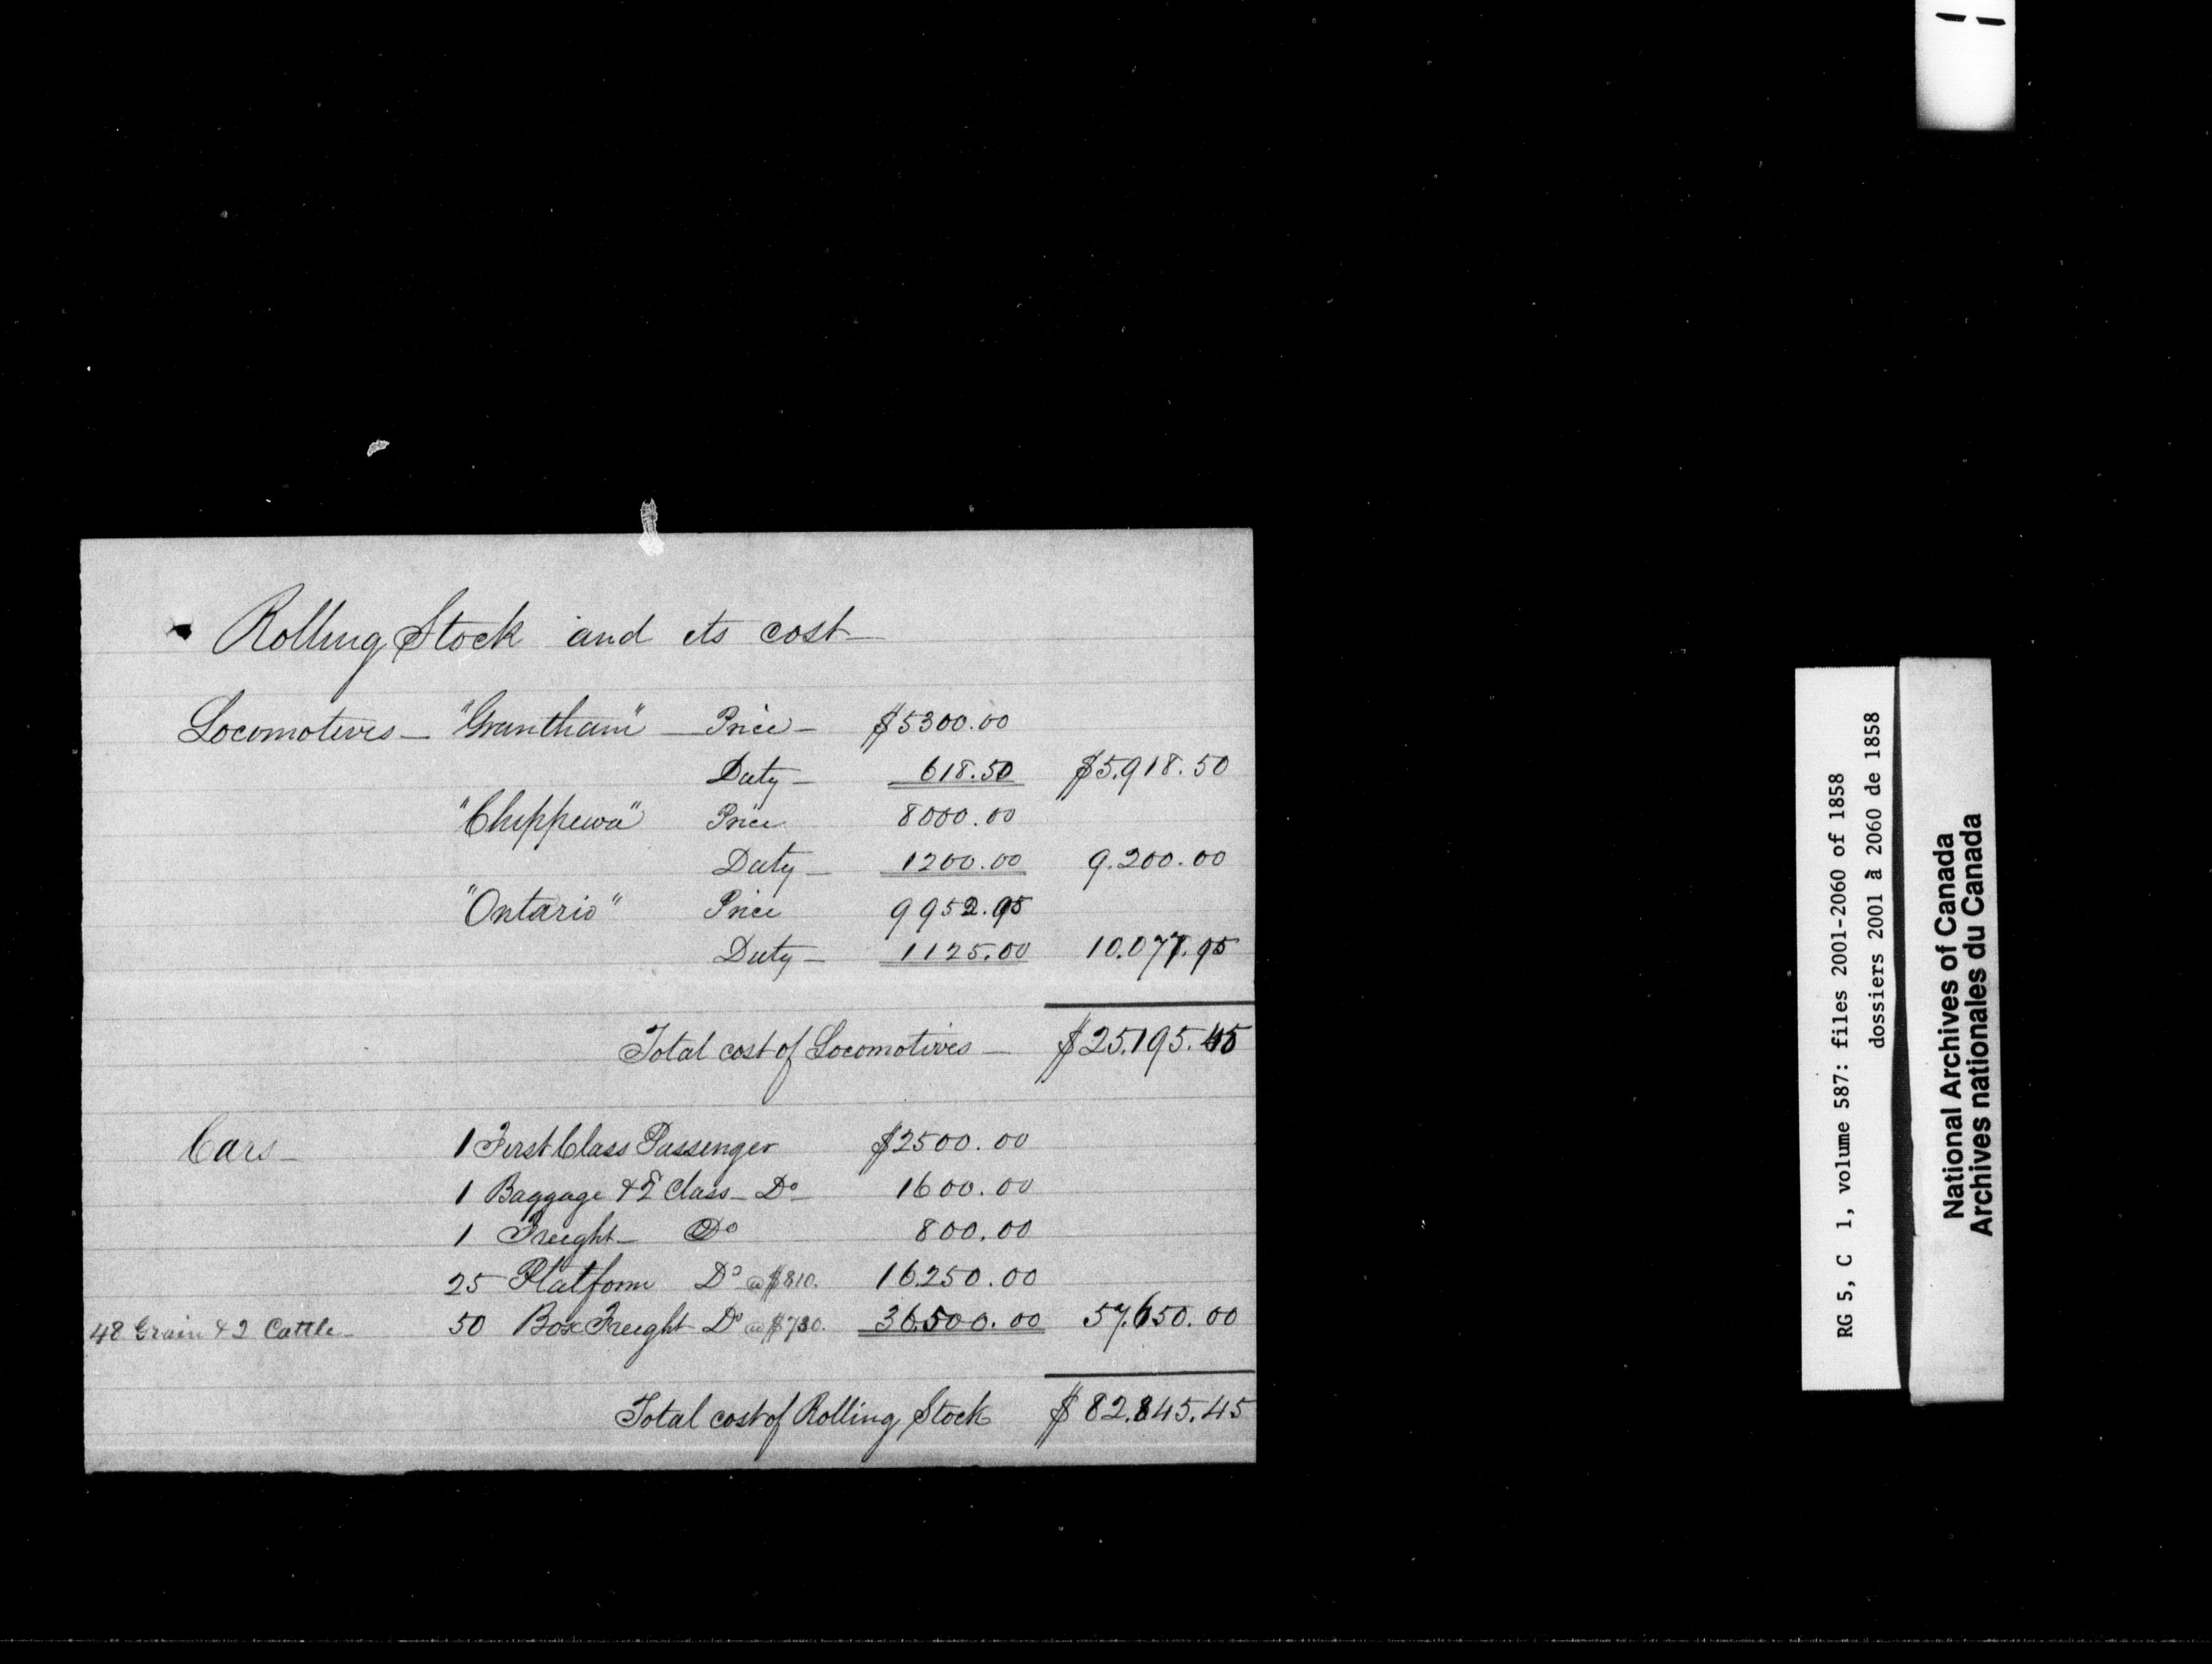 Rolling Stock and its cost—
Locomotives — "Grantham" — Price — $5300.00
Duty — 618.50 $5.918.50
"Chippewa" Price 8000.00
Duty — 1200.00 9.200.00
"Ontario" Price 9952.95
Duty — 1125.00 10.077.95
Total cost of Locomotives — $25.195.45
Cars — 1 First Class Passenger $2500.00
1 Baggage & 2 Class — Do 1600.00
1 Freight — Do 800.00
25 Platform Do @ $810. 16.250.00
48 Grain & 2 Cattle — 50 Box Freight Do @ $730. 36.500.00 57.650.00
Total cost of Rolling Stock $82.845.45
RG 5, C 1, volume 587: files 2001-2060 of 1858
dossiers 2001 à 2060 de 1858
National Archives of Canada
Archives nationales du Canada